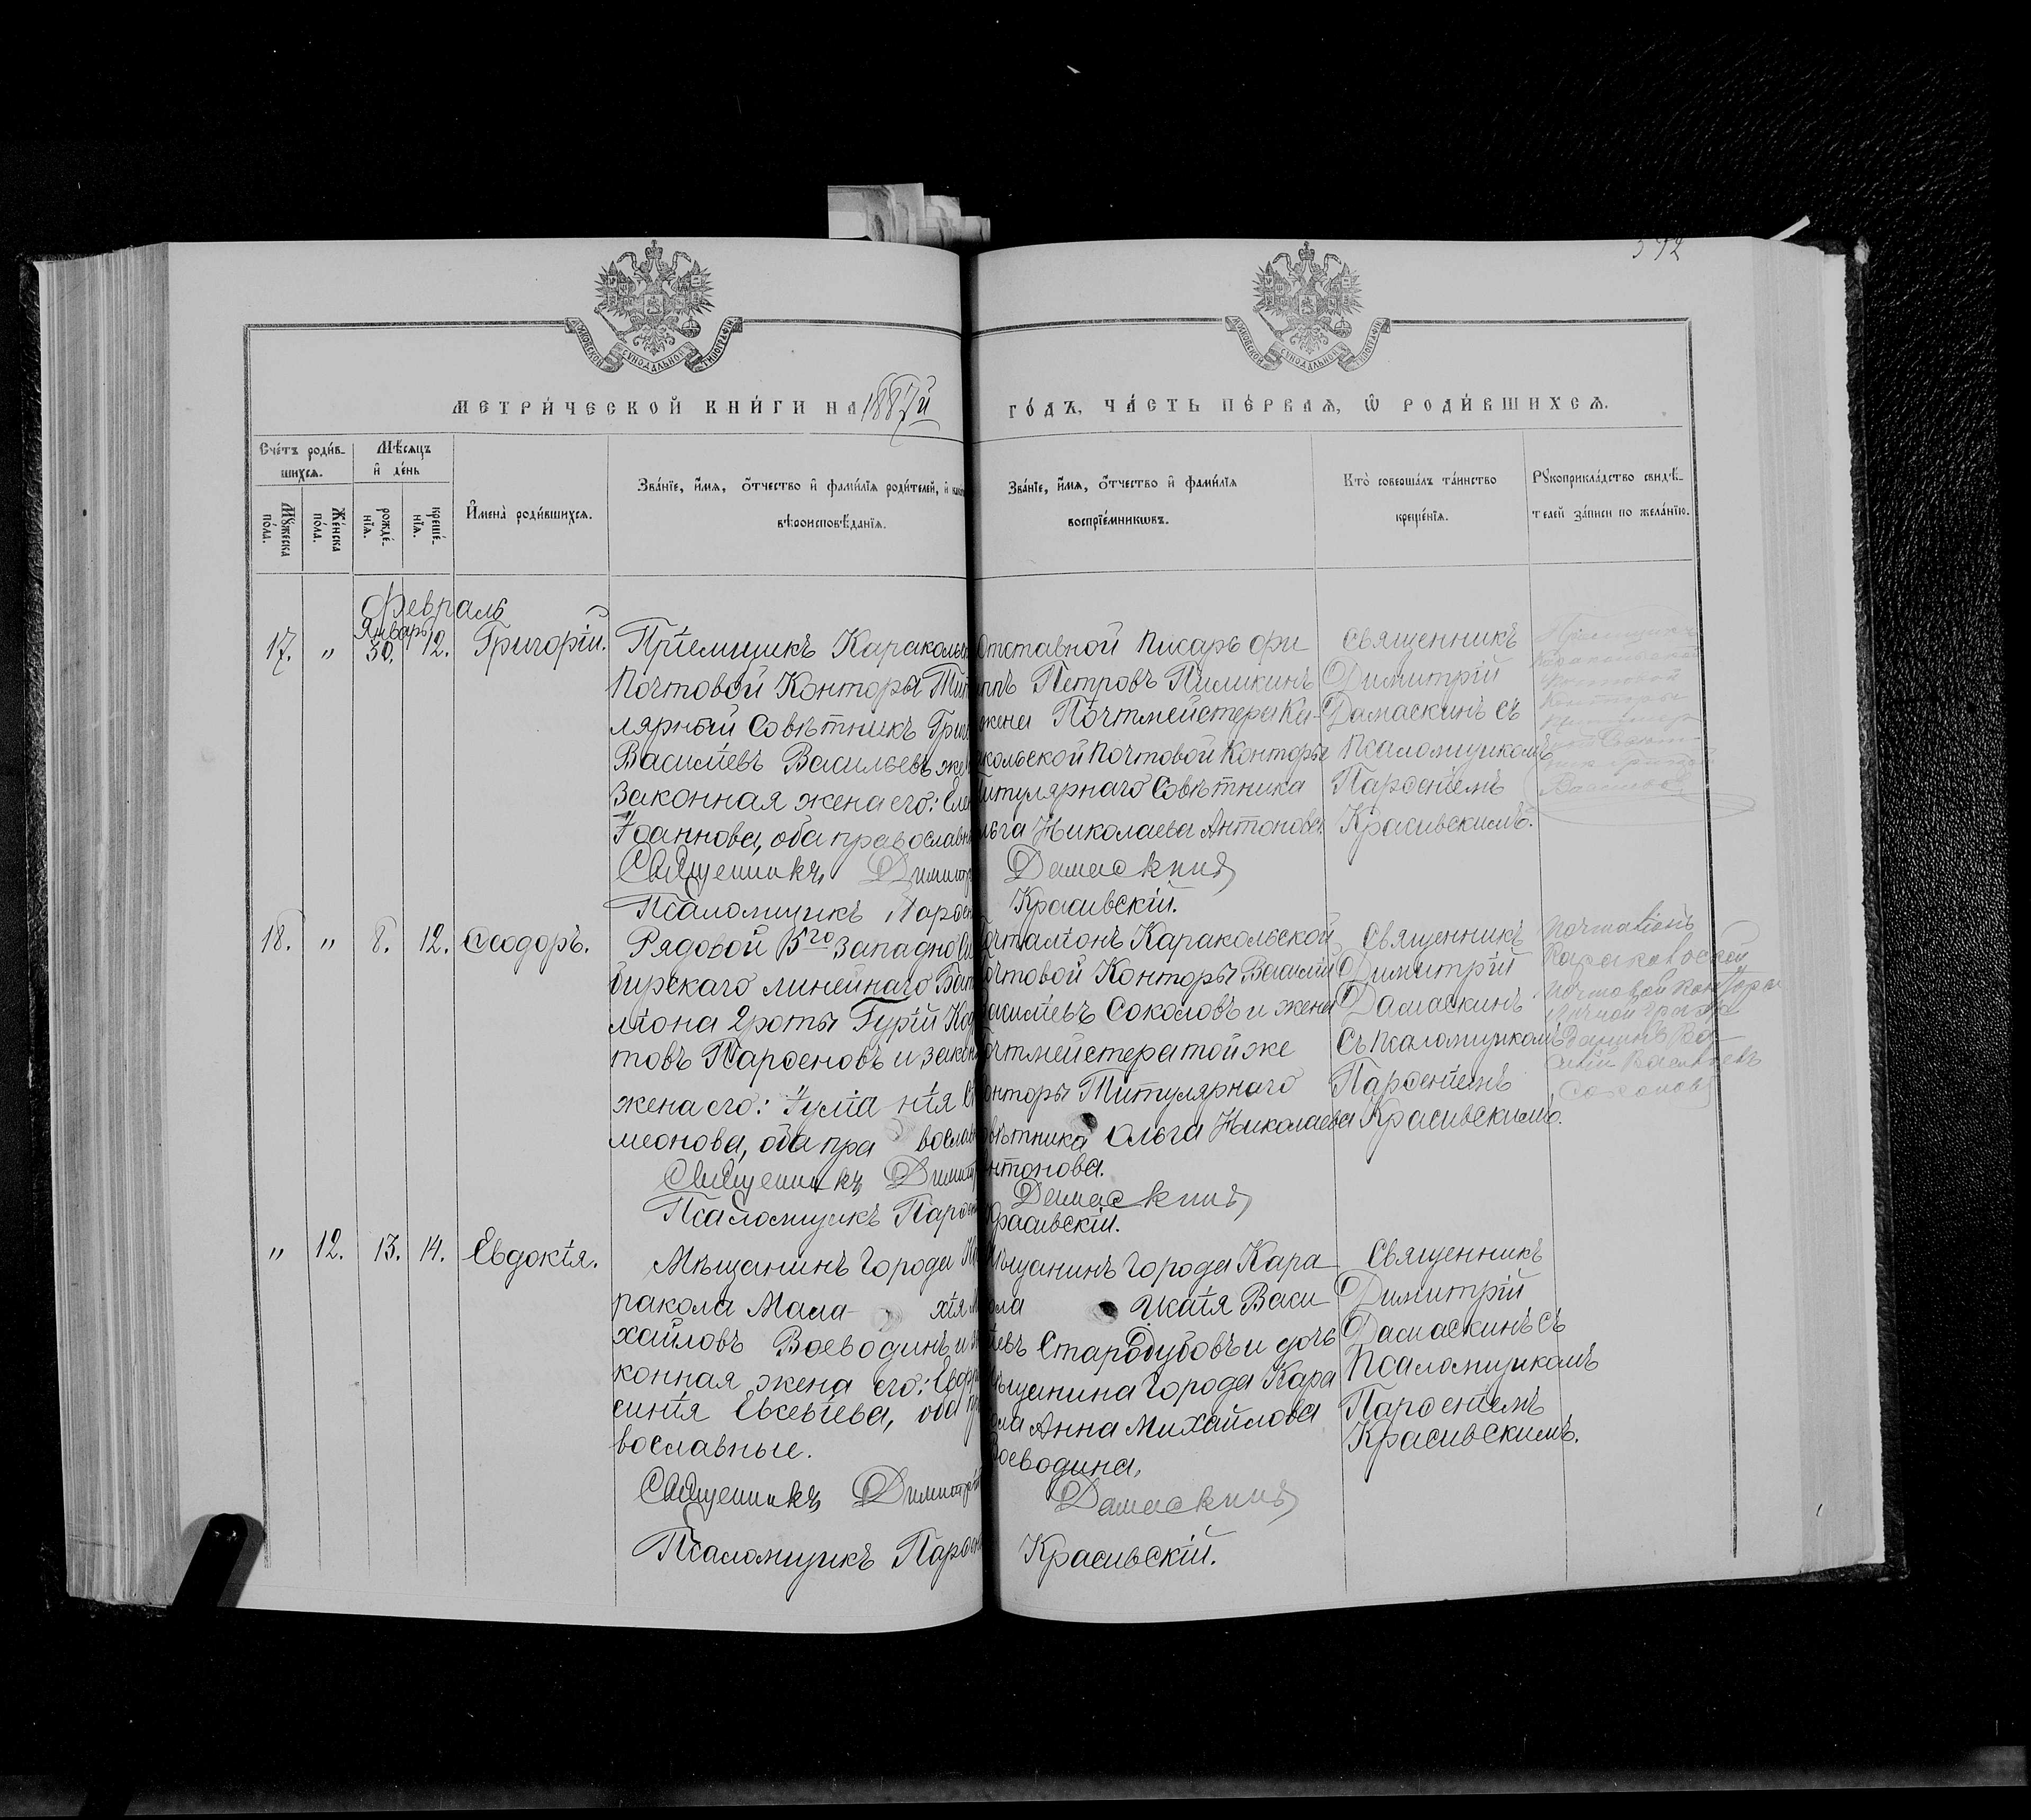 392
МОСКОВСКОЙ СѴНОДАЛЬНОЙ ТИПОГРАФІИ
МОСКОВСКОЙ СѴНОДАЛЬНОЙ ТИПОГРАФІИ
МЕТРИ́ЧЕСКОЙ КНИ́ГИ НА 1887й
ГО́ДЪ, ЧА́СТЬ ПЕ́РВАѦ, Ѿ РОДИ́ВШИХСѦ.
Сче́тъ роди́в-
шихсѧ.
Мꙋ́жеска по́ла.
Же́нска по́ла.
Мѣ́сѧцъ
и҆ де́нь
рожде́-
нїѧ.
креще́-
нїѧ.
И҆мена̀ роди́вшихсѧ.
Зва́нїе, и҆́мѧ, ѻ҆́тчество и҆ фами́лїѧ роди́телей, и҆
вѣроисповѣ́данїѧ.
Зва́нїе, и҆́мѧ, ѻ҆́тчество и҆ фами́лїѧ
воспрїе́мникѡвъ.
Кто̀ соверша́лъ та́инство
креще́нїѧ.
Рꙋкоприкла́дство свидѣ́-
телей за́писи по жела́нїю.
Февраль
17. " Январь 30. 12. Григорій.
Пріемщикъ Караколь
Почтовой Конторы Тит
лярный Совѣтникъ Григ
Василіевъ Васильевъ
законная жена его: Еле
Іоаннова, оба православн
Священникъ Димитр
Псаломщикъ Парѳен
Отставной писарь Фи
ппъ Петровъ Пиликинъ
жена Почтмейстера Ка-
кольской Почтовой Конторы
итулярнаго Совѣтника
льга Николаева Антонова.
Дамаскинъ
Красивскій.
Священникъ
Димитрій
Дамаскинъ съ
Псаломщикомъ
Парѳеніемъ
Красивскимъ.
Пріемщикъ
Каракольской
Почтовой
Конторы
18. " 8. 12. Ѳеодоръ.
Рядовой 5го западно Си
бирскаго линейнаго Бат
ліона 2 роты Гурій Код
товъ Парѳеновъ и закон
жена его: Іуліанія С
меонова, оба православ
Священникъ Димит
Псаломщикъ Парѳен
очталіонъ Каракольской
очтовой Конторы Василій
асиліевъ Соколовъ и жена
очтмейстера той же
онторы Титулярнаго
овѣтника Ольга Николаева
нтонова.
Дамаскинъ
Красивскій.
Священникъ
Димитрій
Дамаскинъ
съ псаломщикомъ
Парѳеніемъ
Красивскимъ.
Почталіонъ
Каракольской
Почтовой Конторы
Василій Васильевъ
Соколовъ
" 12. 13. 14. Евдокія.
Мѣщанинъ города Ка
ракола Малахія М
хайловъ Воеводинъ и
конная жена его: Евфр
синія Евсевіева, оба пр
вославные.
Священникъ Димитрій
Псаломщикъ Парѳен
ѣщанинъ города Кара
ола Исаія Васи
іевъ Стародубовъ и дочь
ѣщанина города Кара
ола Анна Михайлова
оеводина.
Дамаскинъ
Красивскій.
Священникъ
Димитрій
Дамаскинъ съ
Псаломщикомъ
Парѳеніемъ
Красивскимъ.